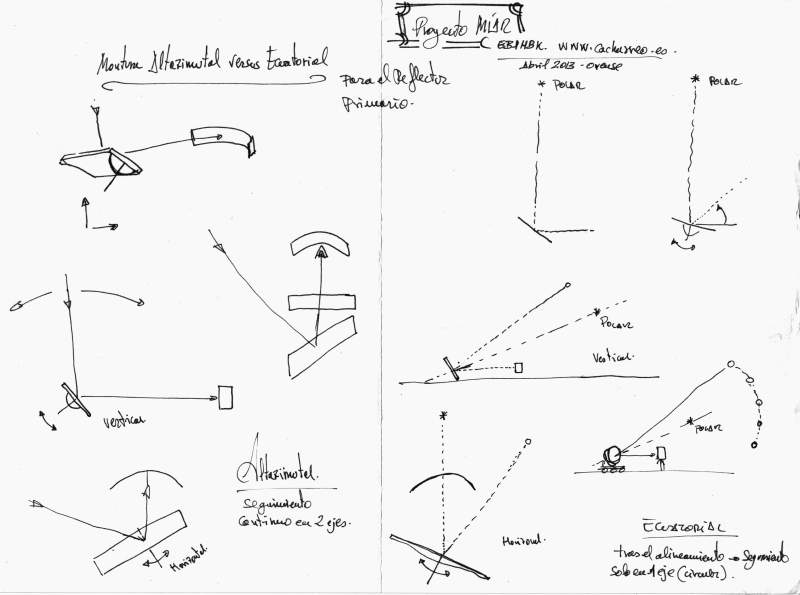 Montura Altazimutal versus Ecuatorial
para el Reflector
Primario.
vertical
Altazimutal.
Seguimiento
Continuo en 2 ejes.
Horizontal
Proyecto MIAR
www.cacharreo.es.
Abril 2013 - Orense
POLAR
POLAR
POLAR
Vertical.
POLAR
Horizontal.
ECUATORIAL
tras el alineamiento → Seguimiento
Sob en 1 eje (circular).